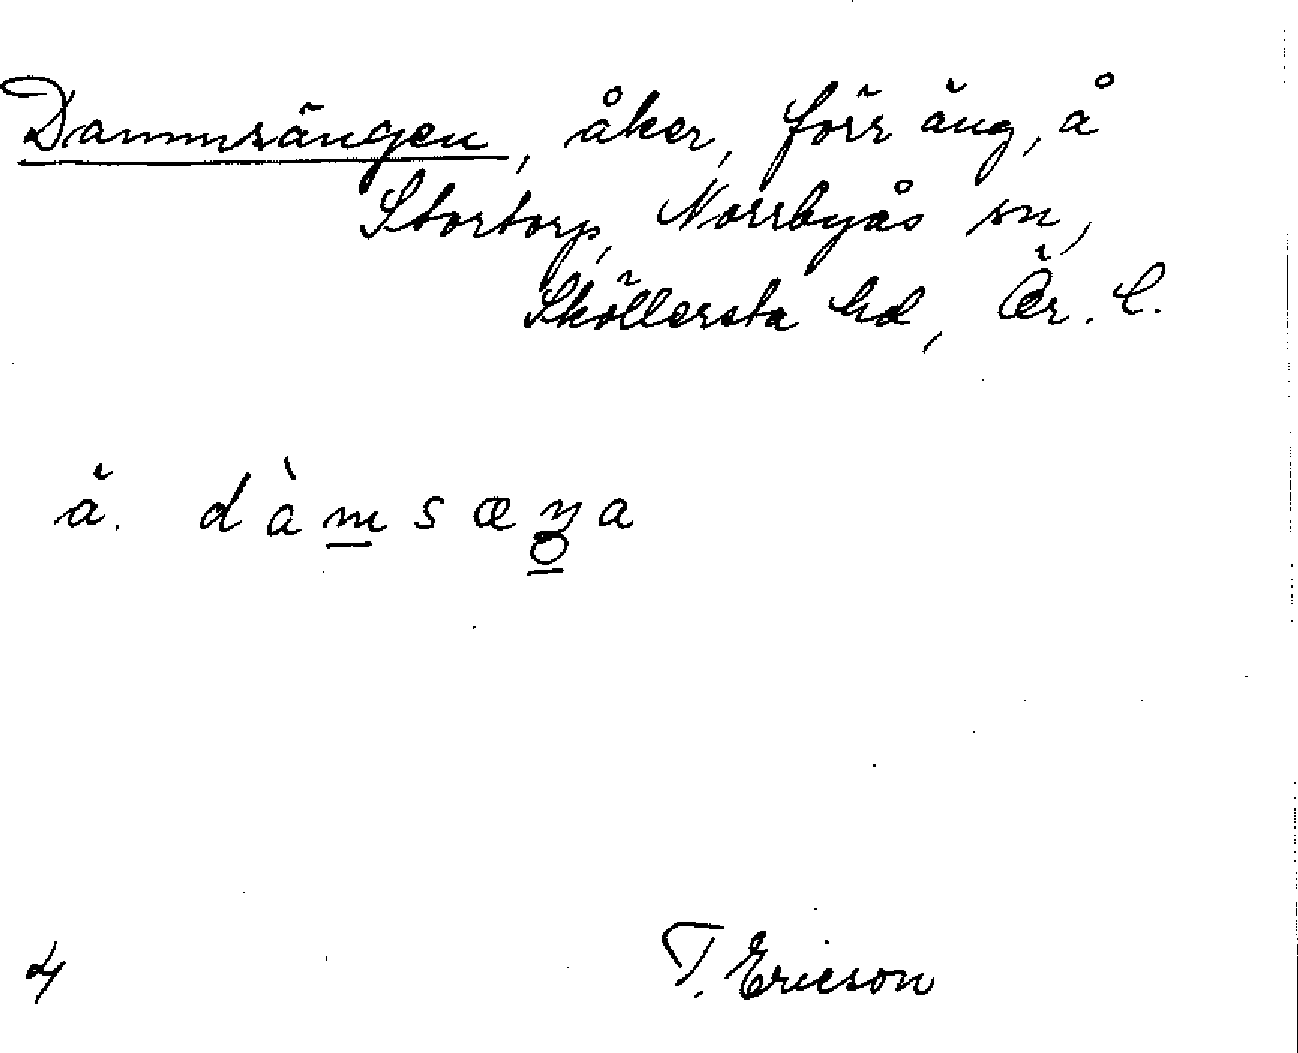 Dammsängen, åker, förr äng, å
Stortorp, Norrbyås sn,
Sköllersta hd, Ör. l.
ä. dàmsæŋa
4
T. Ericson